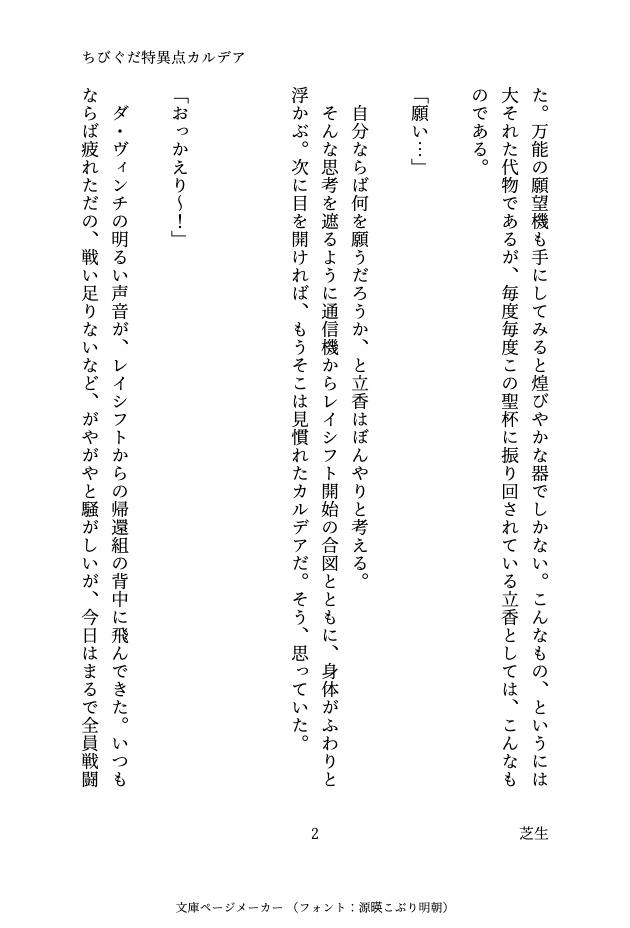 ちびぐだ特異点カルデア
た。万能の願望機も手にしてみると煌びやかな器でしかない。こんなもの、というには
大それた代物であるが、毎度毎度この聖杯に振り回されている立香としては、こんなも
のである。
「願い…」
自分ならば何を願うだろうか、と立香はぼんやりと考える。
そんな思考を遮るように通信機からレイシフト開始の合図とともに、身体がふわりと
浮かぶ。次に目を開ければ、もうそこは見慣れたカルデアだ。そう、思っていた。
「おっかえり～！」
ダ・ヴィンチの明るい声音が、レイシフトからの帰還組の背中に飛んできた。いつも
ならば疲れただの、戦い足りないなど、がやがやと騒がしいが、今日はまるで全員戦闘
2
芝生
文庫ページメーカー（フォント：源暎こぶり明朝）